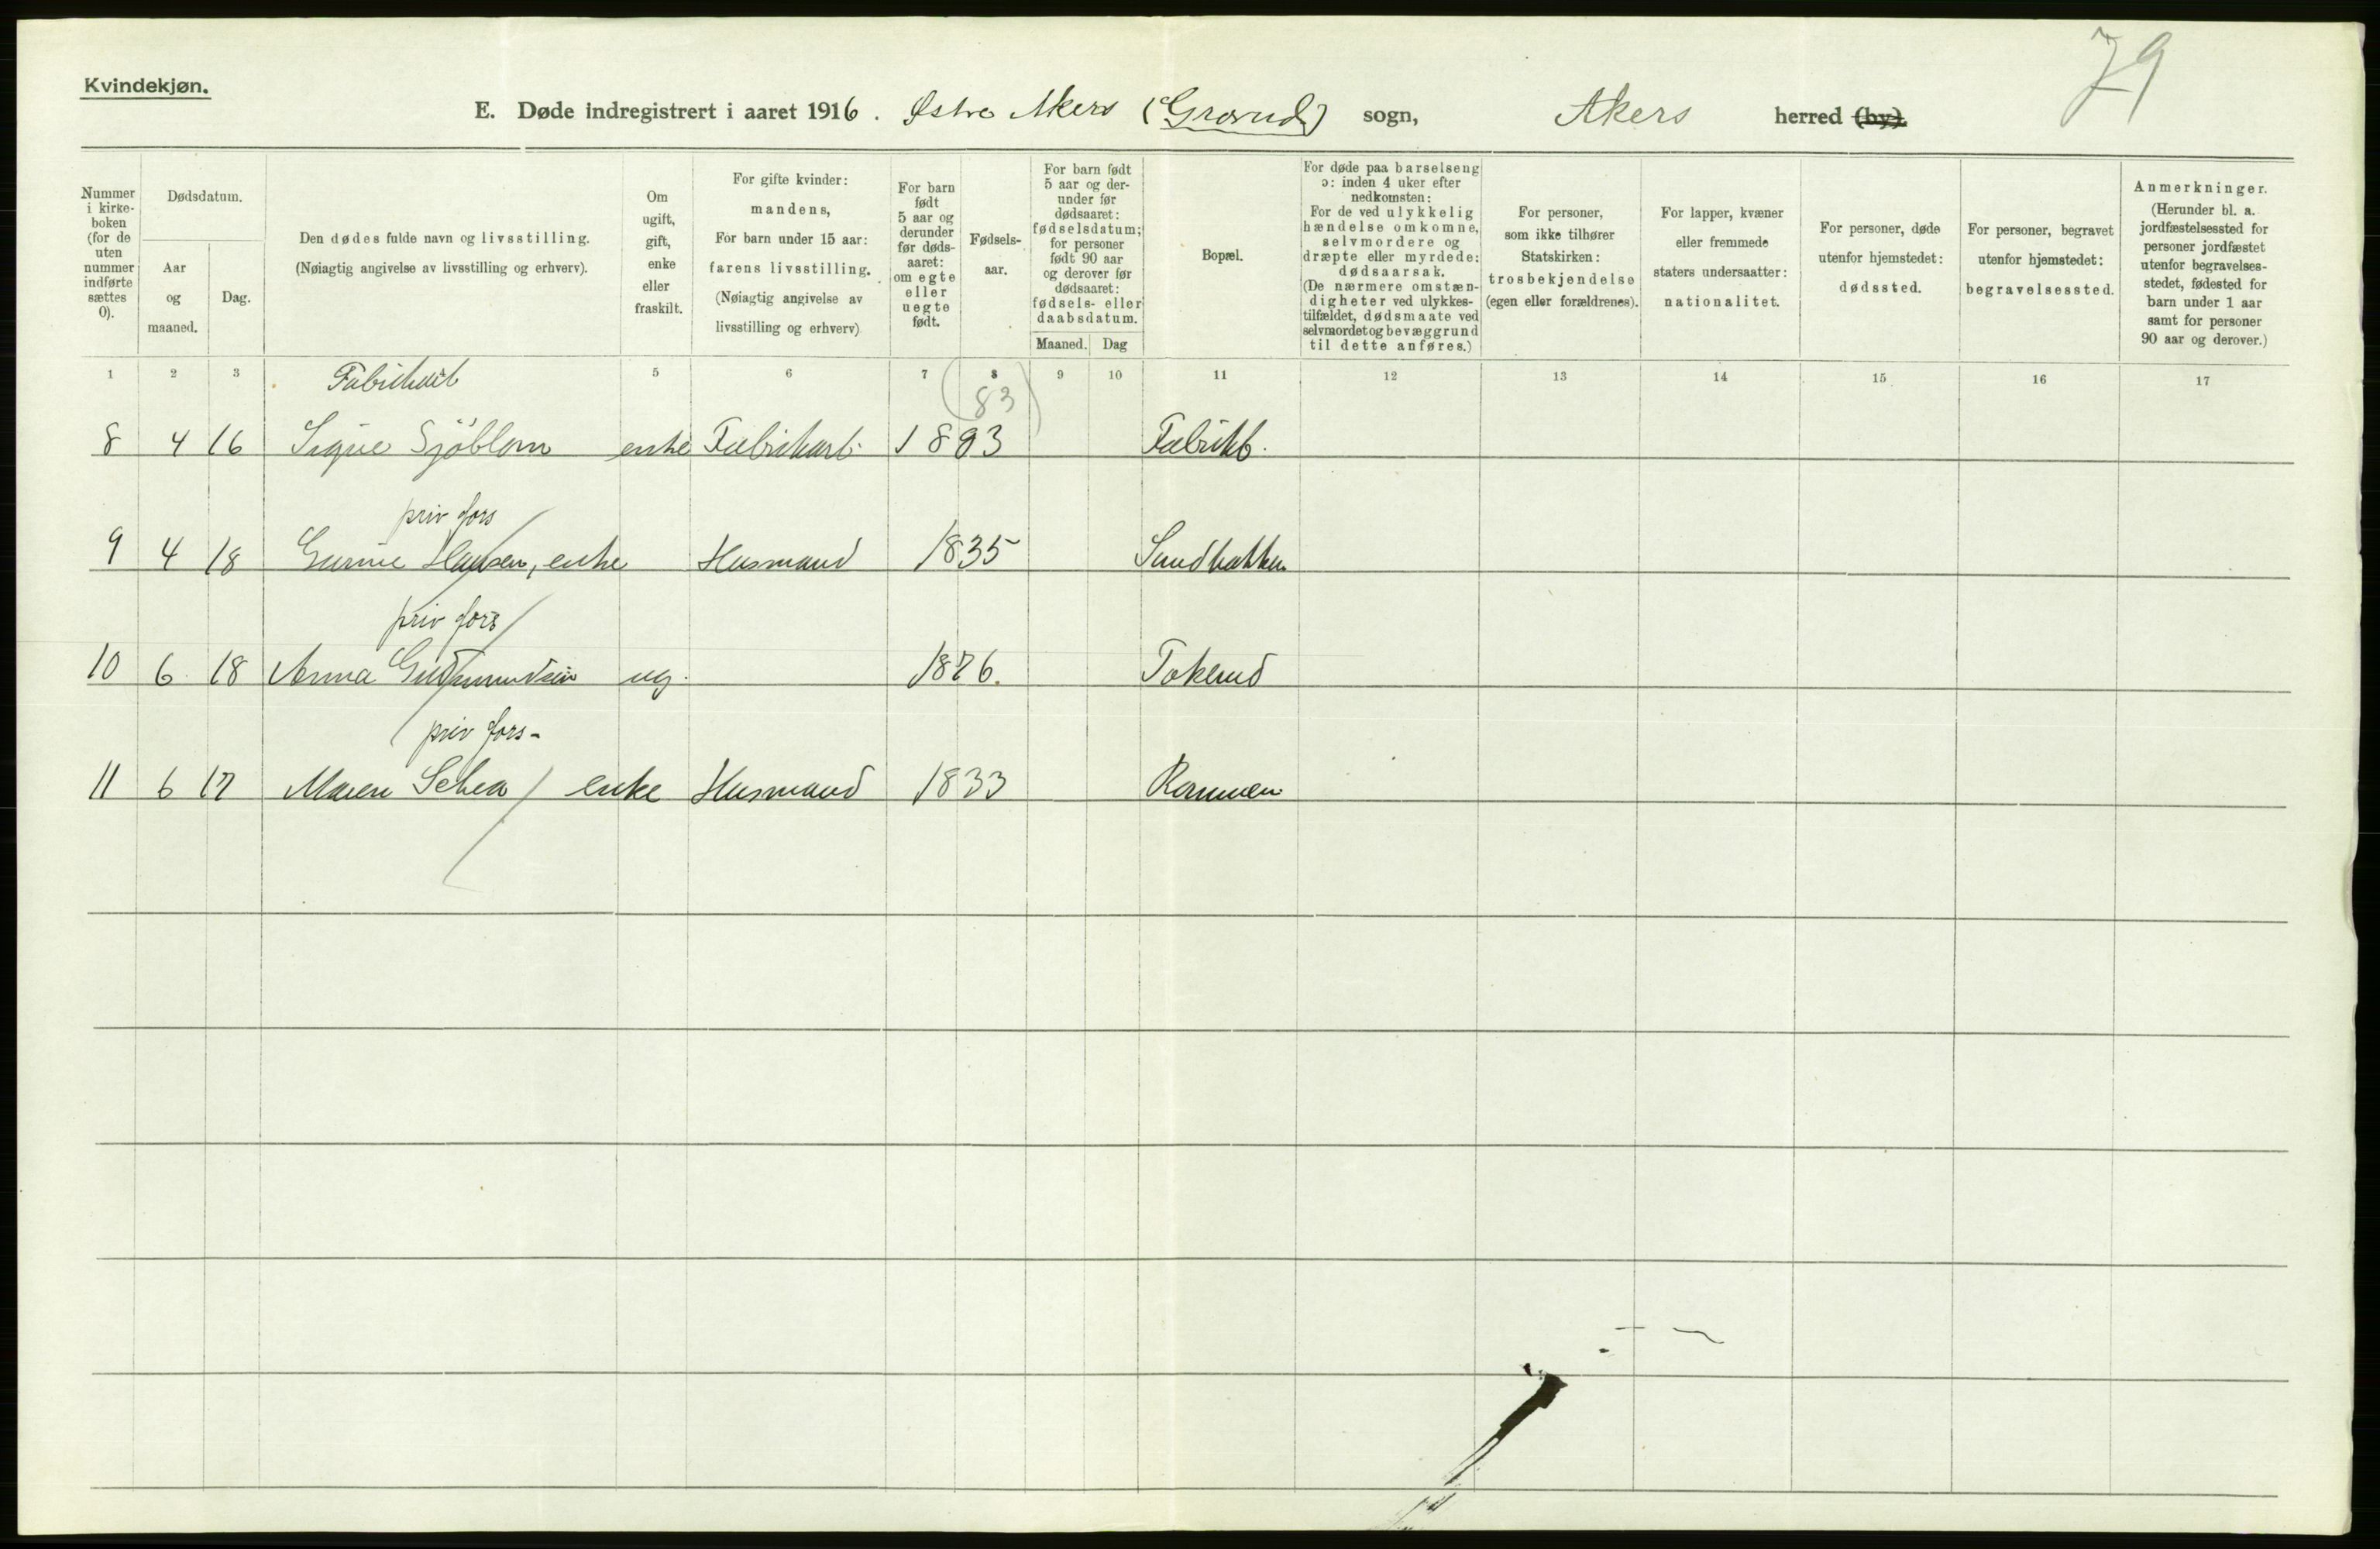 79
Kvindekjøn.
E. Døde indregistrert i aaret 1916. Østre Akers (Grorud) sogn, Akers herred (by).
Nummer i kirke-boken (for de uten nummer indførte sættes 0).
Dødsdatum.
Aar og maaned.
Dag.
Den dødes fulde navn og livsstilling.
(Nøiagtig angivelse av livsstilling og erhverv).
Om ugift, gift, enke eller fraskilt.
For gifte kvinder: mandens, For barn under 15 aar: farens livsstilling. (Nøiagtig angivelse av livsstilling og erhverv)
For barn født 5 aar og derunder før døds-aaret: om egte eller uegte født.
Fødsels-aar.
For barn født 5 aar og der-under før dødsaaret: fødselsdatum; for personer født 90 aar og derover før dødsaaret: fødsels- eller daabsdatum.
Maaned. Dag
Bopæl.
For døde paa barselseng ɔ: inden 4 uker efter nedkomsten: For de ved ulykkelig hændelse omkomne, selvmordere og dræpte eller myrdede: dødsaarsak. (De nærmere omstæn-digheter ved ulykkes-tilfældet, dødsmaate ved selvmordet og bevæggrund til dette anføres.)
For personer, som ikke tilhører Statskirken: trosbekjendelse (egen eller forældrenes).
For lapper, kvæner eller fremmede staters undersaatter: nationalitet.
For personer, døde utenfor hjemstedet: dødssted.
For personer, begravet utenfor hjemstedet: begravelsessted.
Anmerkninger. (Herunder bl. a. jordfæstelsessted for personer jordfæstet utenfor begravelses-stedet, fødested for barn under 1 aar samt for personer 90 aar og derover.)
1 2 3 5 6 7 8 9 10 11 12 13 14 15 16 17
Fabrikarb
(83)
8 4 16 Signe Sjöblom enke Fabrikarb. 1883 Fabrikb.
priv fors
9 4 18 Gurine Hansen, enke Husmand 1835 Sandbakken
priv fors
10 6 18 Anna Gudmundsen ug. 1876. Tokerud
priv fors-
11 6 17 Maren Schea enke Husmand 1833 Rommen